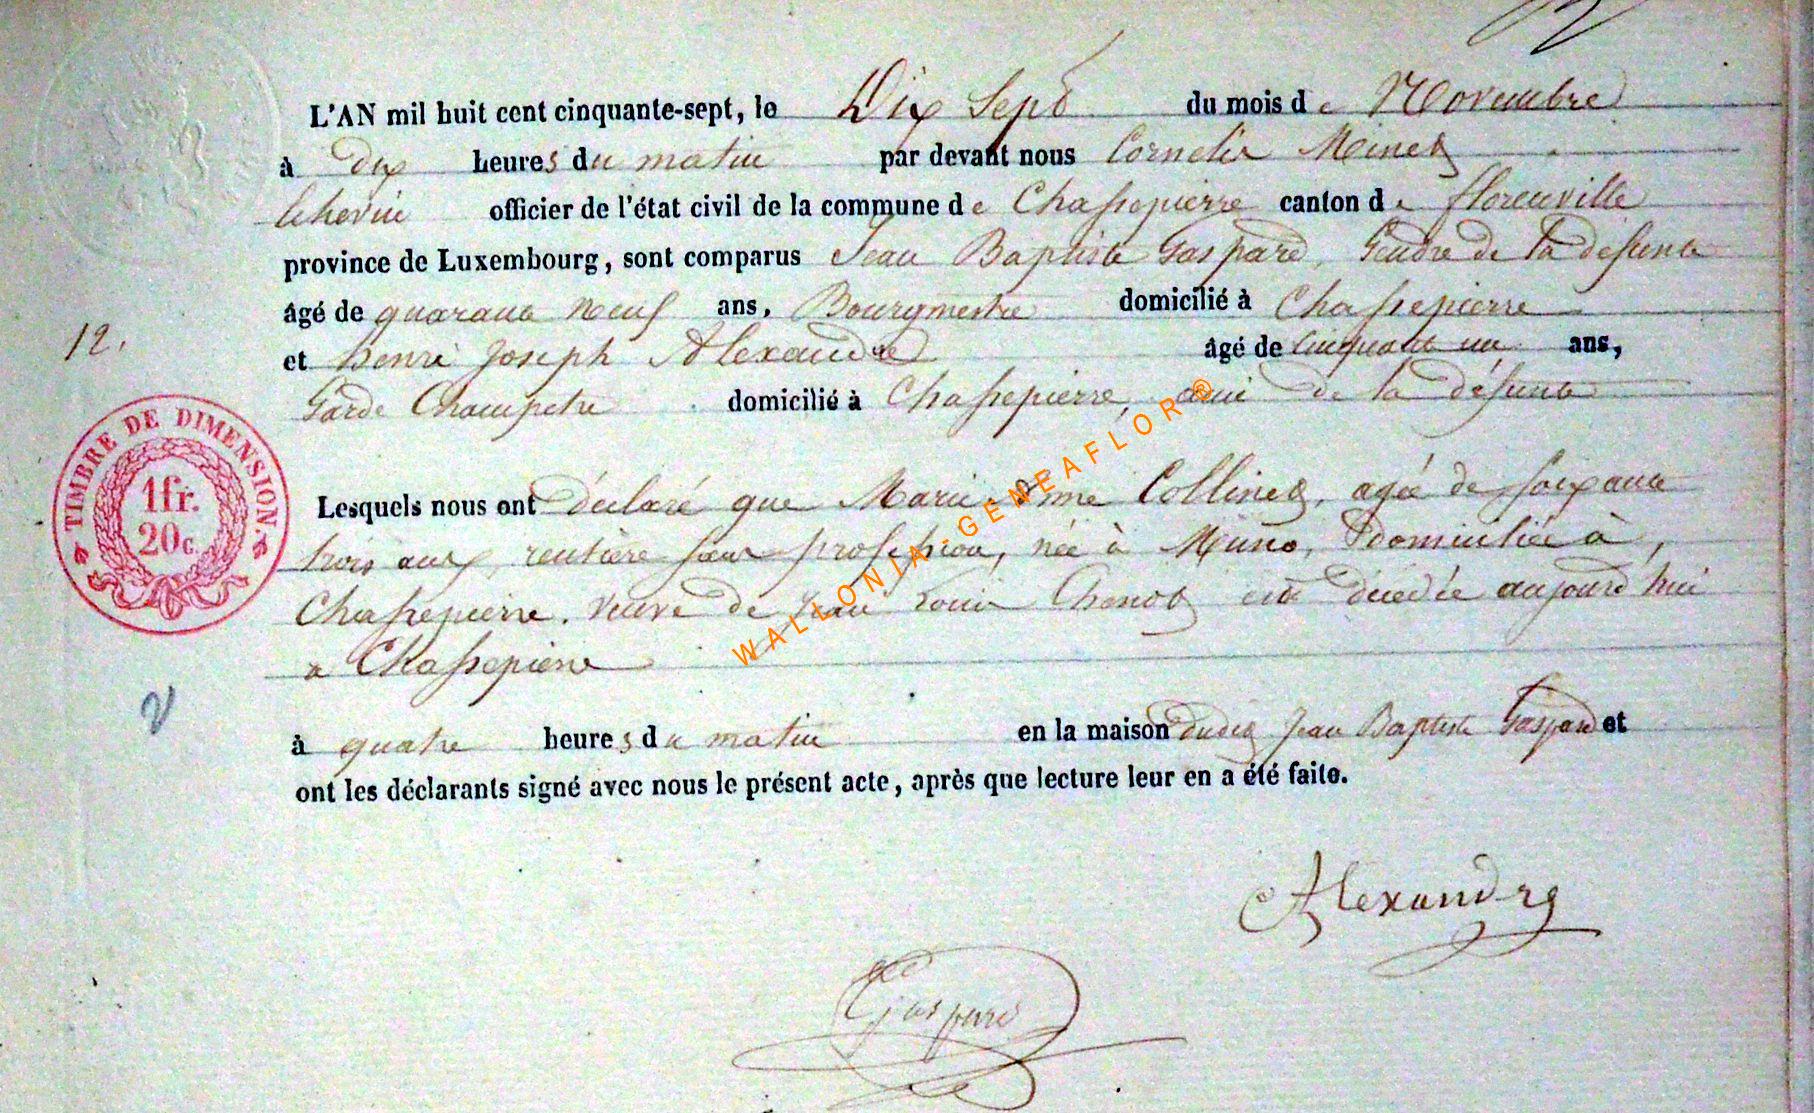 L'AN mil huit cent cinquante-sept, le Dix Sept du mois de Novembre
à dix heures du matin par devant nous Cornelis Meinet
Echevin officier de l'état civil de la commune de Chassepierre canton de florenville
province de Luxembourg, sont comparus Jean Baptiste Gaspard, Gendre de la défunte
âgé de quarante neuf ans, Bourgmestre domicilié à Chassepierre
12.
et henri Joseph Alexandre âgé de Cinquante un ans,
Garde Champetre domicilié à Chassepierre, ami de la défunte
TIMBRE DE DIMENSION.
1fr.
20c.
WALLONIA-GENEAFLOR®
Lesquels nous ont déclaré que Marie Collinet, agée de soixante
trois ans, rentière profession, née à Muno, domiciliée à,
Chassepierre, veuve de Jean Louis Chenot est décédée aujourd'hui
a Chassepierre
à quatre heures du matin en la maison dudit Jean Baptiste Gaspard et
ont les déclarants signé avec nous le présent acte, après que lecture leur en a été faite.
Alexandre
Gaspard